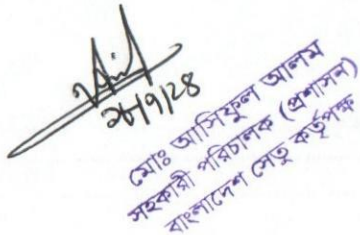 ২৮/৭/২৪
মোঃ আসিফুল আলম
সহকারী পরিচালক (প্রশাসন)
বাংলাদেশ সেতু কর্তৃপক্ষ